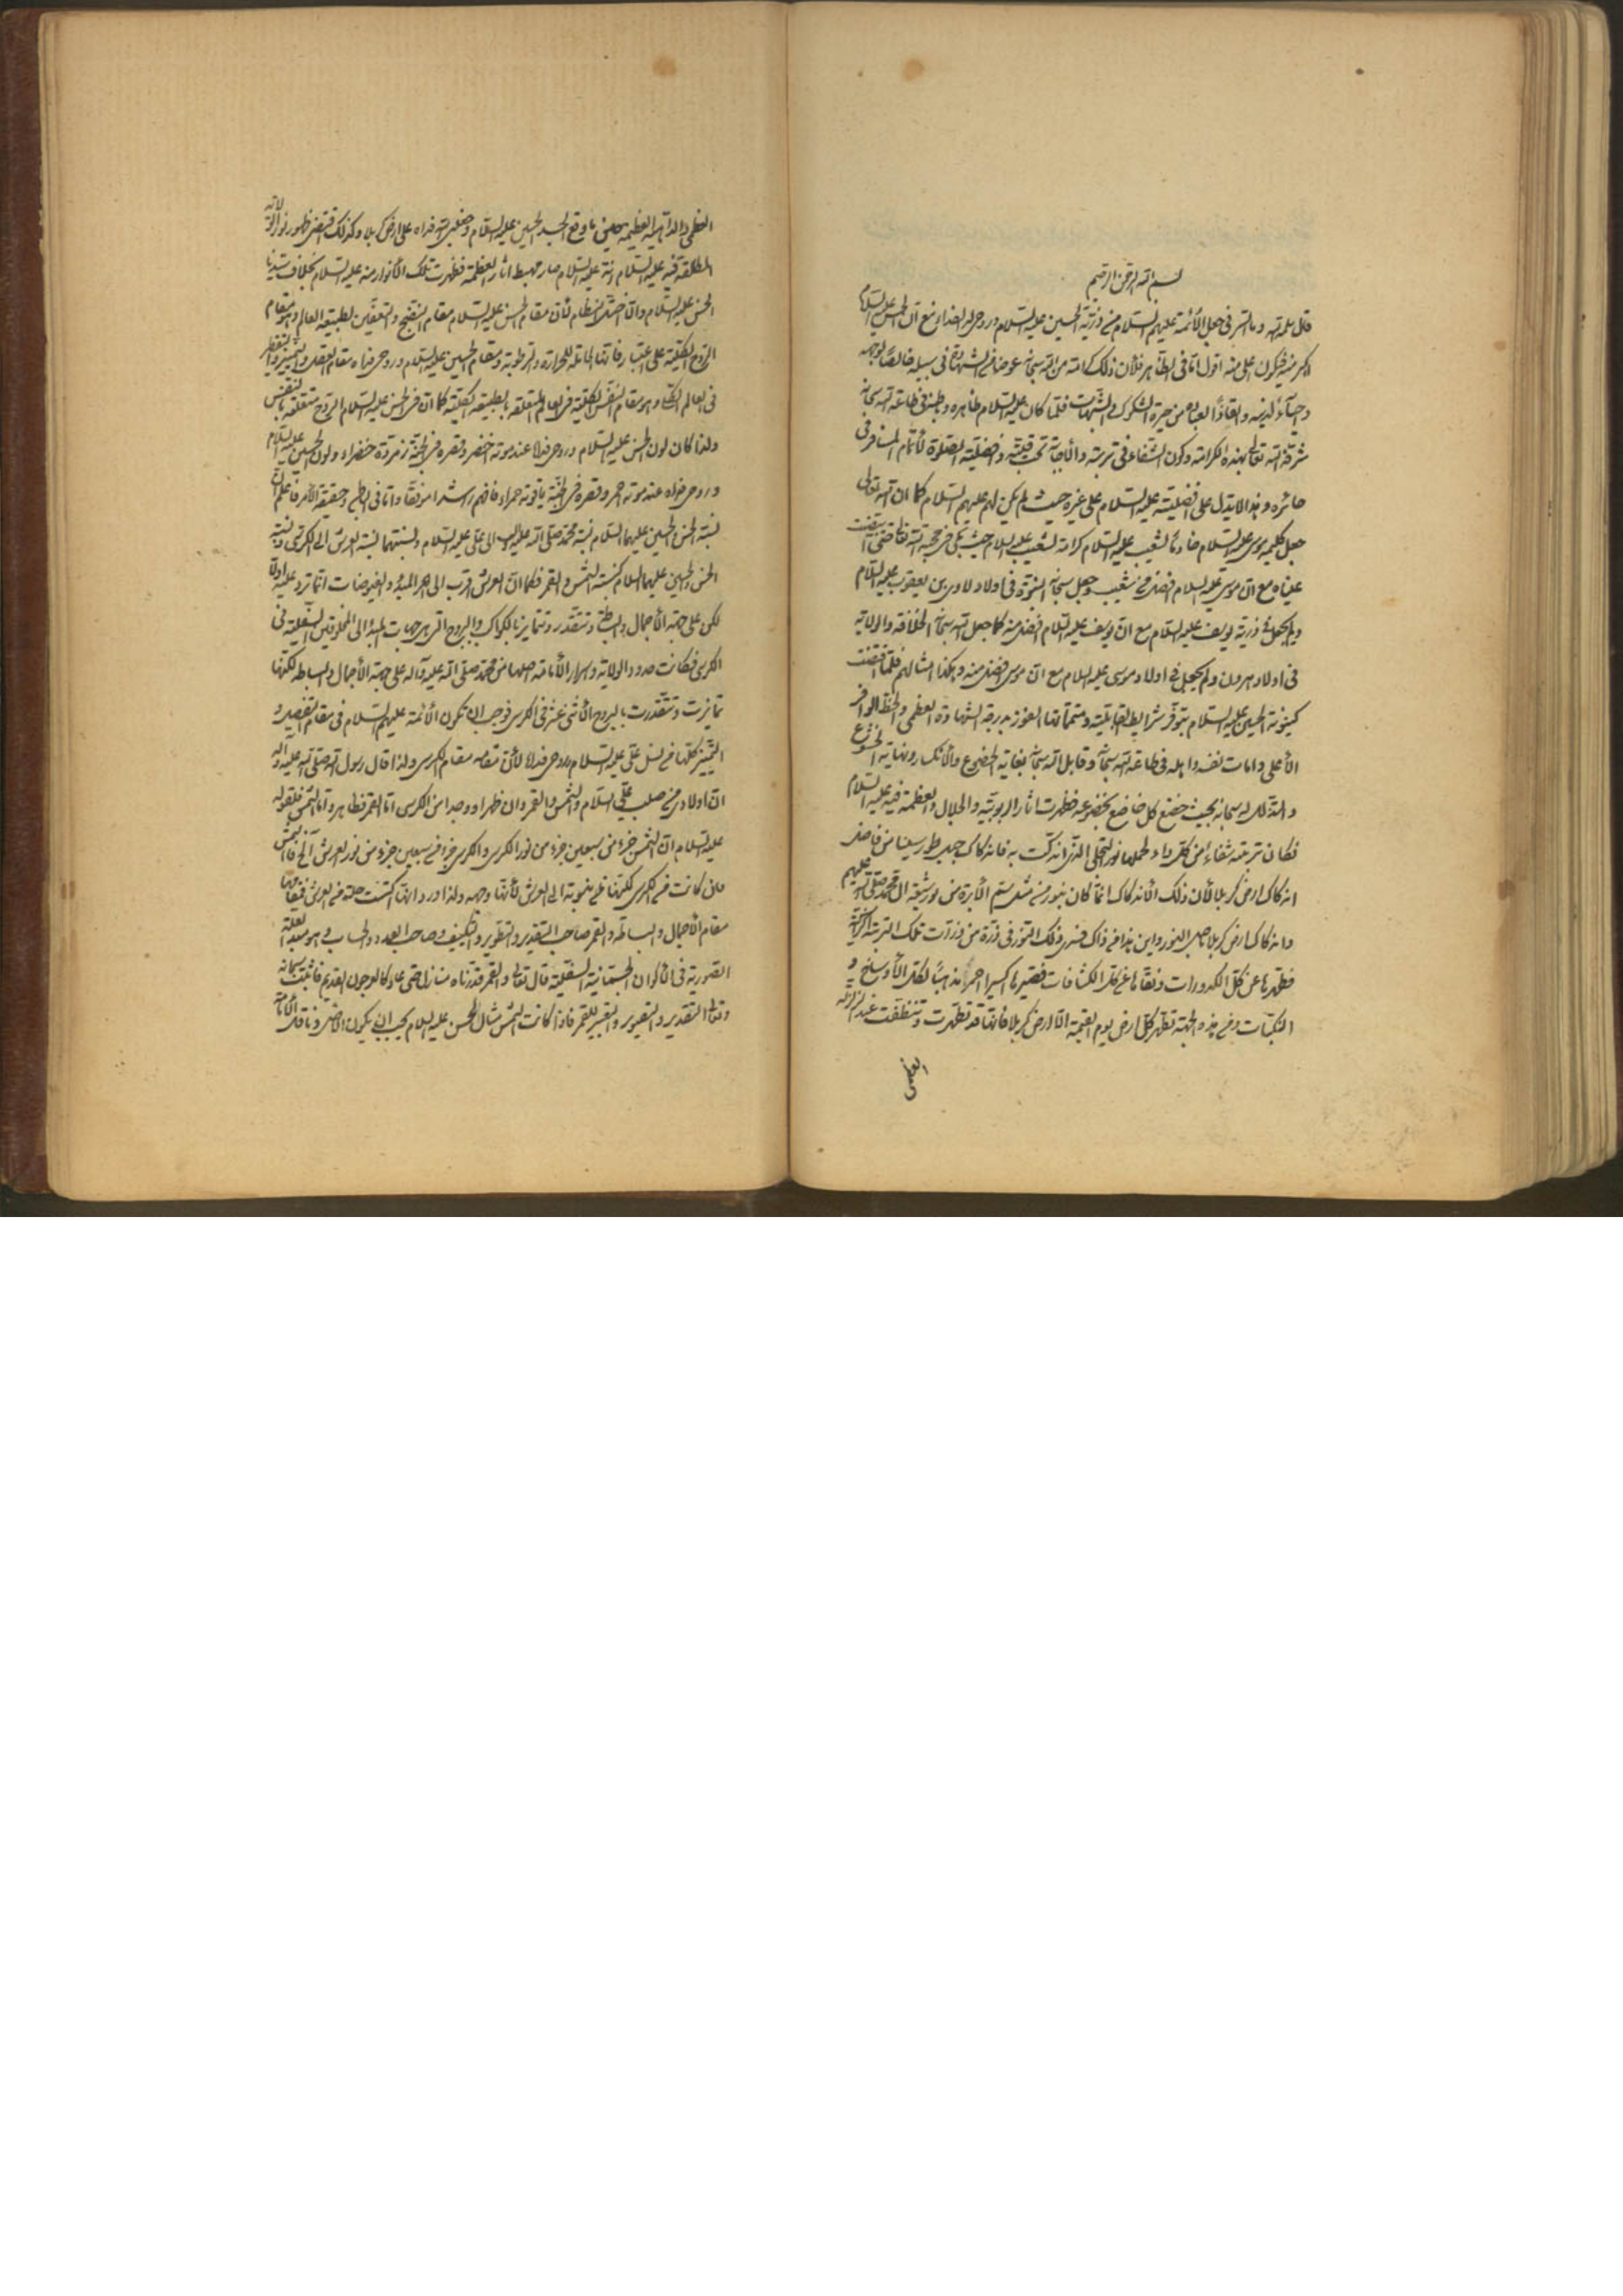 بسم الله الرحمن الرحيم
قال سلمه الله وما السر في جعل الأئمة عليهم السلام من ذرية الحسين عليه السلام وروحي له الفداء مع ان الحسن عليه السلام
اكبر منه فيكون اعلى منه اقول اما في الظاهر فلأن ذلك كرامة من الله سبحانه عوضا من الشهادة في سبيله خالصا لوجهه
واحياء لدينه وانقاذا لعباده من حيرة الشكوك والشبهات فلما كان عليه السلام ظاهره وباطنه في طاعة الله سبحانه
شرفه الله تعالى بهذه الكرامة وكون الشفاء في تربته والأجابة تحت قبته وافضلية الصلوة لأتمام المسافر في
حائره وهذا لا يدل على افضليته عليه السلام على غيره حيث لم يكن لهم عليهم السلام كما ان الله تعالى
جعل كليمه موسى عليه السلام خادما لشعيب عليه السلام كرامة لشعيب عليه السلام حيث بكى في محبة الله تعالى حتى ابيضت
عيناه مع ان موسى عليه السلام افضل من شعيب وجعل سبحانه النبوة في اولاد لاوي بن يعقوب عليه السلام
ولم يجعل في ذرية يوسف عليه السلام مع ان يوسف عليه السلام افضل منه كما جعل الله سبحانه الخلافة والولاية
في اولاد هرون ولم يجعل في اولاد موسى عليه السلام مع ان موسى افضل منه وهكذا امثالهم فلما اقتضت
كينونة الحسين عليه السلام بتوفر شرايط القابلية ومتمماتها الفوز بدرجة الشهادة العظمى والحظ الوافر
الأعلى وامات نفسه واهله في طاعة الله سبحانه وقابل الله سبحانه بغاية الخضوع والأنكسار ونهاية الخشوع
والتذلل له سبحانه بحيث خضع كل خاضع بخضوعه فظهرت اثار الربوبية والجلال والعظمة فيه عليه السلام
فكان تربته شفاء من كل داء لحملها نور التجلي الذي اندكت به فانه كما اندك جبل طور سينا من فاضل
اندكاك ارض كربلا لأن ذلك الأندكاك انما كان بنور من مثل سم الأبرة من نور شيعة آل محمد صلى الله عليهم
واندكاك ارض كربلا باصل النور واين هذا من ذاك فسرى ذلك النور في ذرة من ذرات تلك التربة الزاكية
فطهرها عن كل الكدورات ونقاها عن كل الكثافات فصيرها اكسيرا احمر مذهبا لكل الأوساخ و
النكبات ومن هذه الجهة تطهر كل ارض يوم القيمة الا ارض كربلا فانها قد تطهرت وتنظفت عند الزلزلة
العظمى
العظمى والداهية العظيمة حين ما وقع الجسد الحسين عليه السلام وجعلني الله فداه على ارض كربلا وكذلك اقتضى ظهور نور الولاية
المطلقة فيه عليه السلام لأنه عليه السلام صار مهبط اثار العظمة فظهرت تلك الأنوار منه عليه السلام بخلاف سيدنا
الحسن عليه السلام واما اختلال النظام لأن مقام الحسن عليه السلام مقام النضج والتعفين لطبيعة العالم وهو مقام
الروح الكلية على اعتبار فانها الحاملة للحرارة والرطوبة ومقام الحسين عليه السلام وروحي فداه مقام العقد والتمييز والتفصيل
في العالم الكلي وهو مقام النفس الكلية في العالم المتعلقة بالطبيعة الكلية كما ان في الحسن عليه السلام الروح متعلقة بالنفس
ولذا كان لون الحسن عليه السلام وروحي فداه عند موته اخضر وقصره في الجنة زمردة خضراء ولون الحسين عليه السلام
وروحي فداه عند موته احمر وقصره في الجنة ياقوتة حمراء فافهم راشدا موفقا واما في الواقع وحقيقة الأمر فاعلم ان
نسبة الحسن والحسين عليهما السلام نسبة محمد صلى الله عليه وآله الى علي عليه السلام ونسبتهما نسبة العرش الى الكرسي ونسبة
الحسن والحسين عليهما السلام كنسبة الشمس والقمر فكما ان العرش اقرب الى المبدء والفيوضات انما ترد عليه اولا
لكن على جهة الأجمال والبساطة وتتقدر وتتمايز بالكواكب والبروج التي هي جهات المبدء الى المخلوقين السفلية في
الكرسي فكانت حدود الولاية واسرار الأمامة اصلها من محمد صلى الله عليه وآله على جهة الأجمال والبساطة لكنها
تمايزت وتقدرت بالبروج الأثنى عشر في الكرسي فوجب ان تكون الأئمة عليهم السلام في مقام التفصيل و
التمييز كلها من نسل علي عليه السلام وروحي فداه لأن مقامه مقام الكرسي ولذا قال رسول الله صلى الله عليه وآله
ان اولادي من صلب علي عليه السلام والشمس والقمر وان ظهرا ووجدا من الكرسي اما القمر فظاهر واما الشمس فلقوله
عليه السلام ان الشمس جزء من سبعين جزء من نور الكرسي والكرسي جزء من سبعين جزء من نور العرش الخ فالشمس
وان كانت من الكرسي لكنها منسوبة الى العرش لأنها وجهه ولذا ورد انها اكتست حلة من العرش فمقامها
مقام الأجمال والبساطة والقمر صاحب التقدير والتطوير والتكييف وصاحب العدد والحساب وهو العلة
الصورية في الأكوان الجسمانية السفلية قال تعالى والقمر قدرناه منازل حتى عاد كالعرجون القديم فاثبت سبحانه
وتعالى التقدير والتصوير والتغيير للقمر فاذا كانت الشمس مثال الحسن عليه السلام يجب ان يكون الأصل وناقل الأمامة